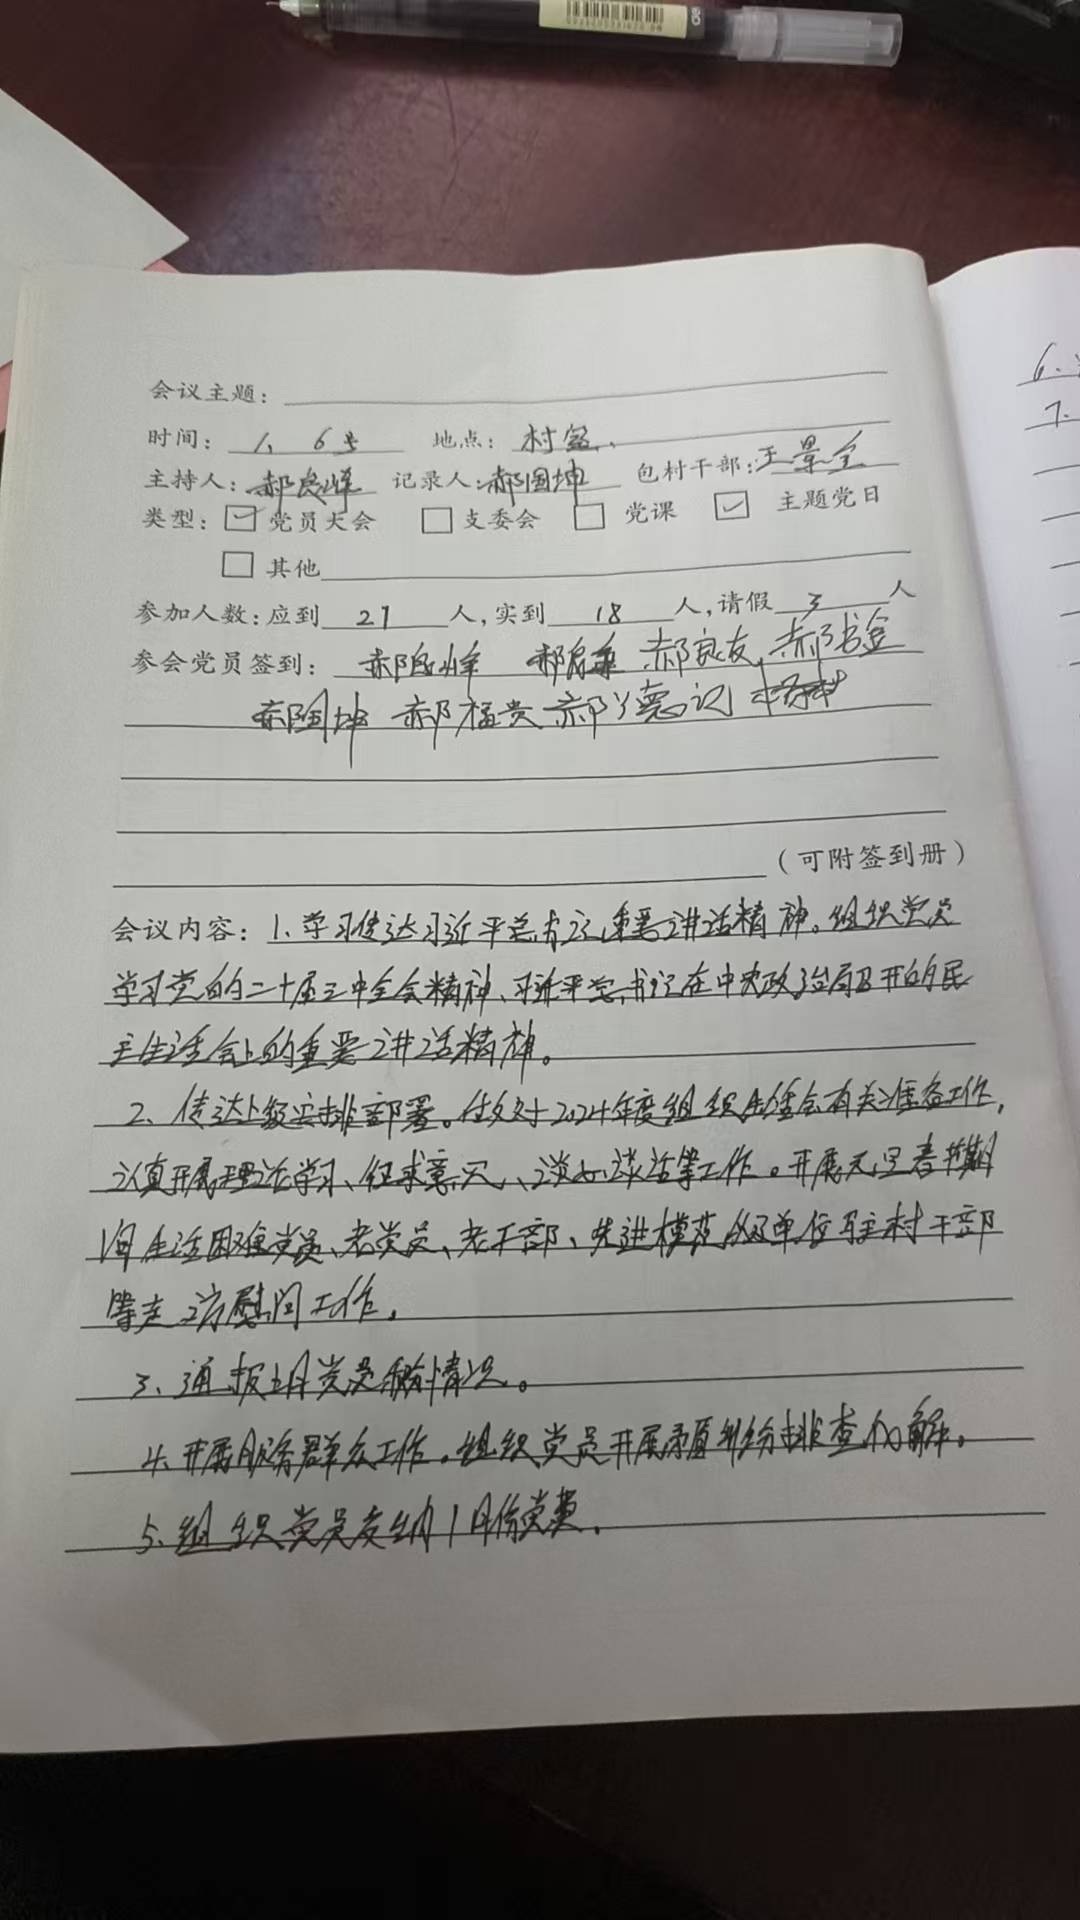 会议主题：
时间：1、6号 地点：村室、
主持人：郝良峰 记录人：郝国坤 包村干部：王景全
类型：☑党员大会 □支委会 □党课 ☑主题党日
□其他
参加人数：应到 21 人，实到 18 人，请假 3 人
参会党员签到：郝良峰 郝良友 郝书金
郝国坤 郝福贵 郝德记
（可附签到册）
会议内容：1、学习传达习近平总书记重要讲话精神。组织党员
学习党的二十届三中全会精神、习近平总书记在中央政治局召开的民
主生活会上的重要讲话精神。
2、传达上级安排部署。做好2024年度组织生活会有关准备工作，
认真开展理论学习、征求意见、谈心谈话等工作。开展元旦春节期
间生活困难党员、老党员、老干部、先进模范 单位驻村干部
等走访慰问工作。
3、通报上月党员积分情况。
4、开展服务群众工作。组织党员开展矛盾纠纷排查化解。
5、组织党员交纳1月份党费。
6、
7、